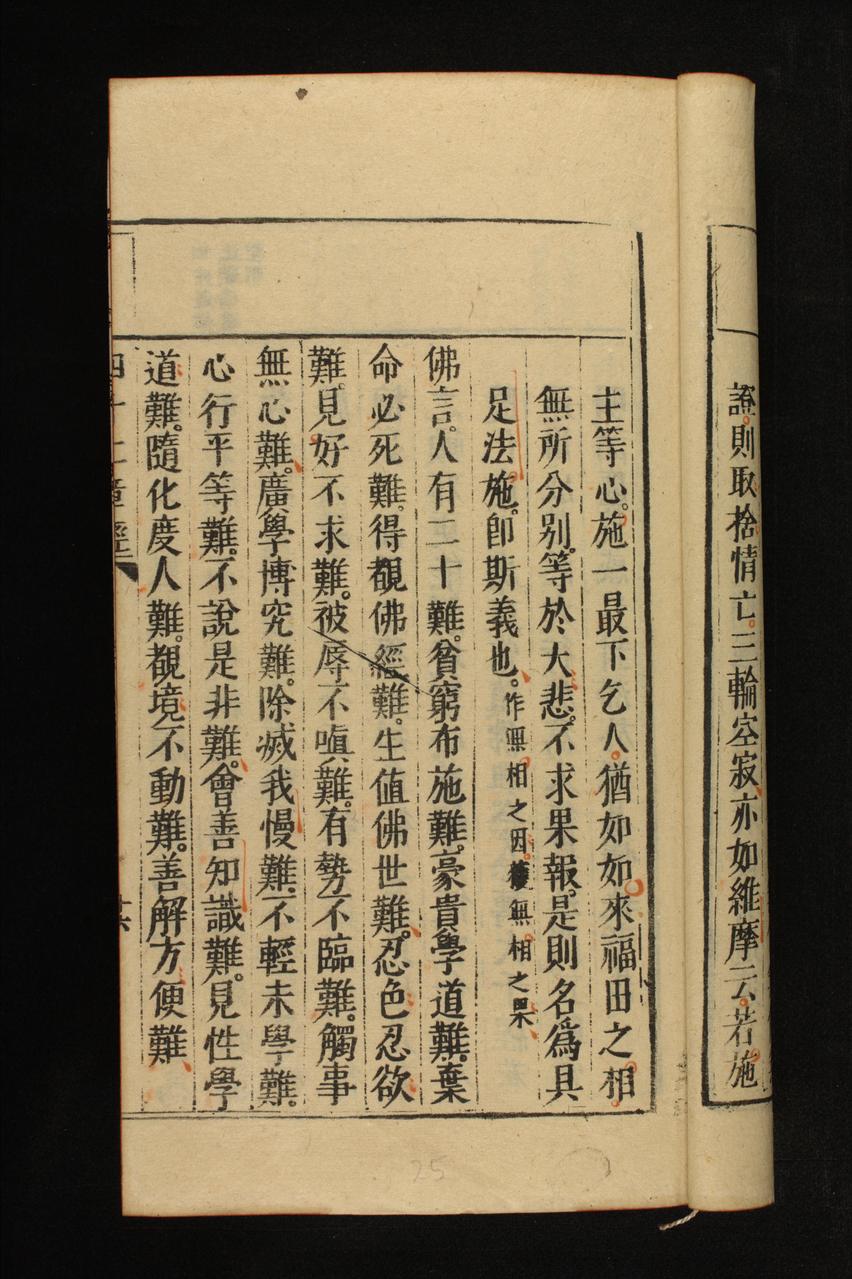 證則取捨情亡。三輪空寂亦如維摩云。若施
主等心。施一最下乞人。猶如如來福田之相。
無所分别。等於大悲。不求果報。是則名爲具
足法施。卽斯義也。作無相之因。獲無相之果
佛言。人有二十難。貧窮布施難。豪貴學道難。棄
命必死難。得覩佛經難。生值佛世難。忍色忍欲
難。見好不求難。被辱不嗔難。有勢不臨難。觸事
無心難。廣學博究難。除滅我慢難。不輕未學難。
心行平等難。不說是非難。會善知識難。見性學
道難。隨化度人難。覩境不動難。善解方便難
四十二章經
廿六
25